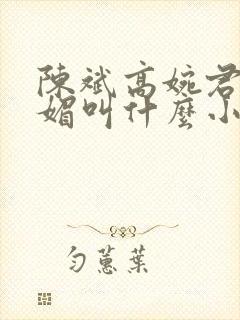 陳斌高婉君
媚叫什麼小
勻蕙葉